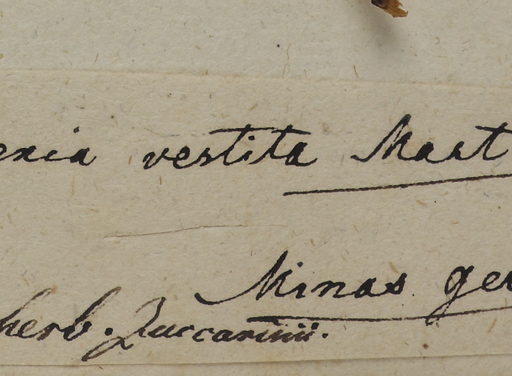 enia vestita Mart
Minas ger
herb. Zuccarinii.